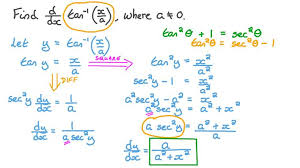 Find d/dx tan⁻¹(x/a), where a ≠ 0.
tan²θ + 1 = sec²θ
tan²θ = sec²θ − 1
Let y = tan⁻¹(x/a)
tan y = x/a
SQUARE
tan²y = x²/a²
DIFF
sec²y − 1 = x²/a²
sec²y dy/dx = 1/a
a²sec²y − a² = x²
a²sec²y = a² + x²
dy/dx = 1/(a sec²y)
a sec²y = (a² + x²)/a
dy/dx = a/(a² + x²)